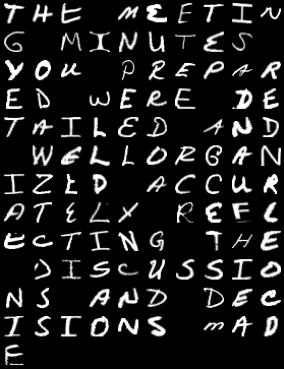 THE MEETIN
G MINUTES
YOU PREPAR
ED WERE DE
TAILED AND
WELLORGAN
IZED ACCUR
ATELY REFL
ECTING THE
DISCUSSIO
NS AND DEC
ISIONS MAD
E